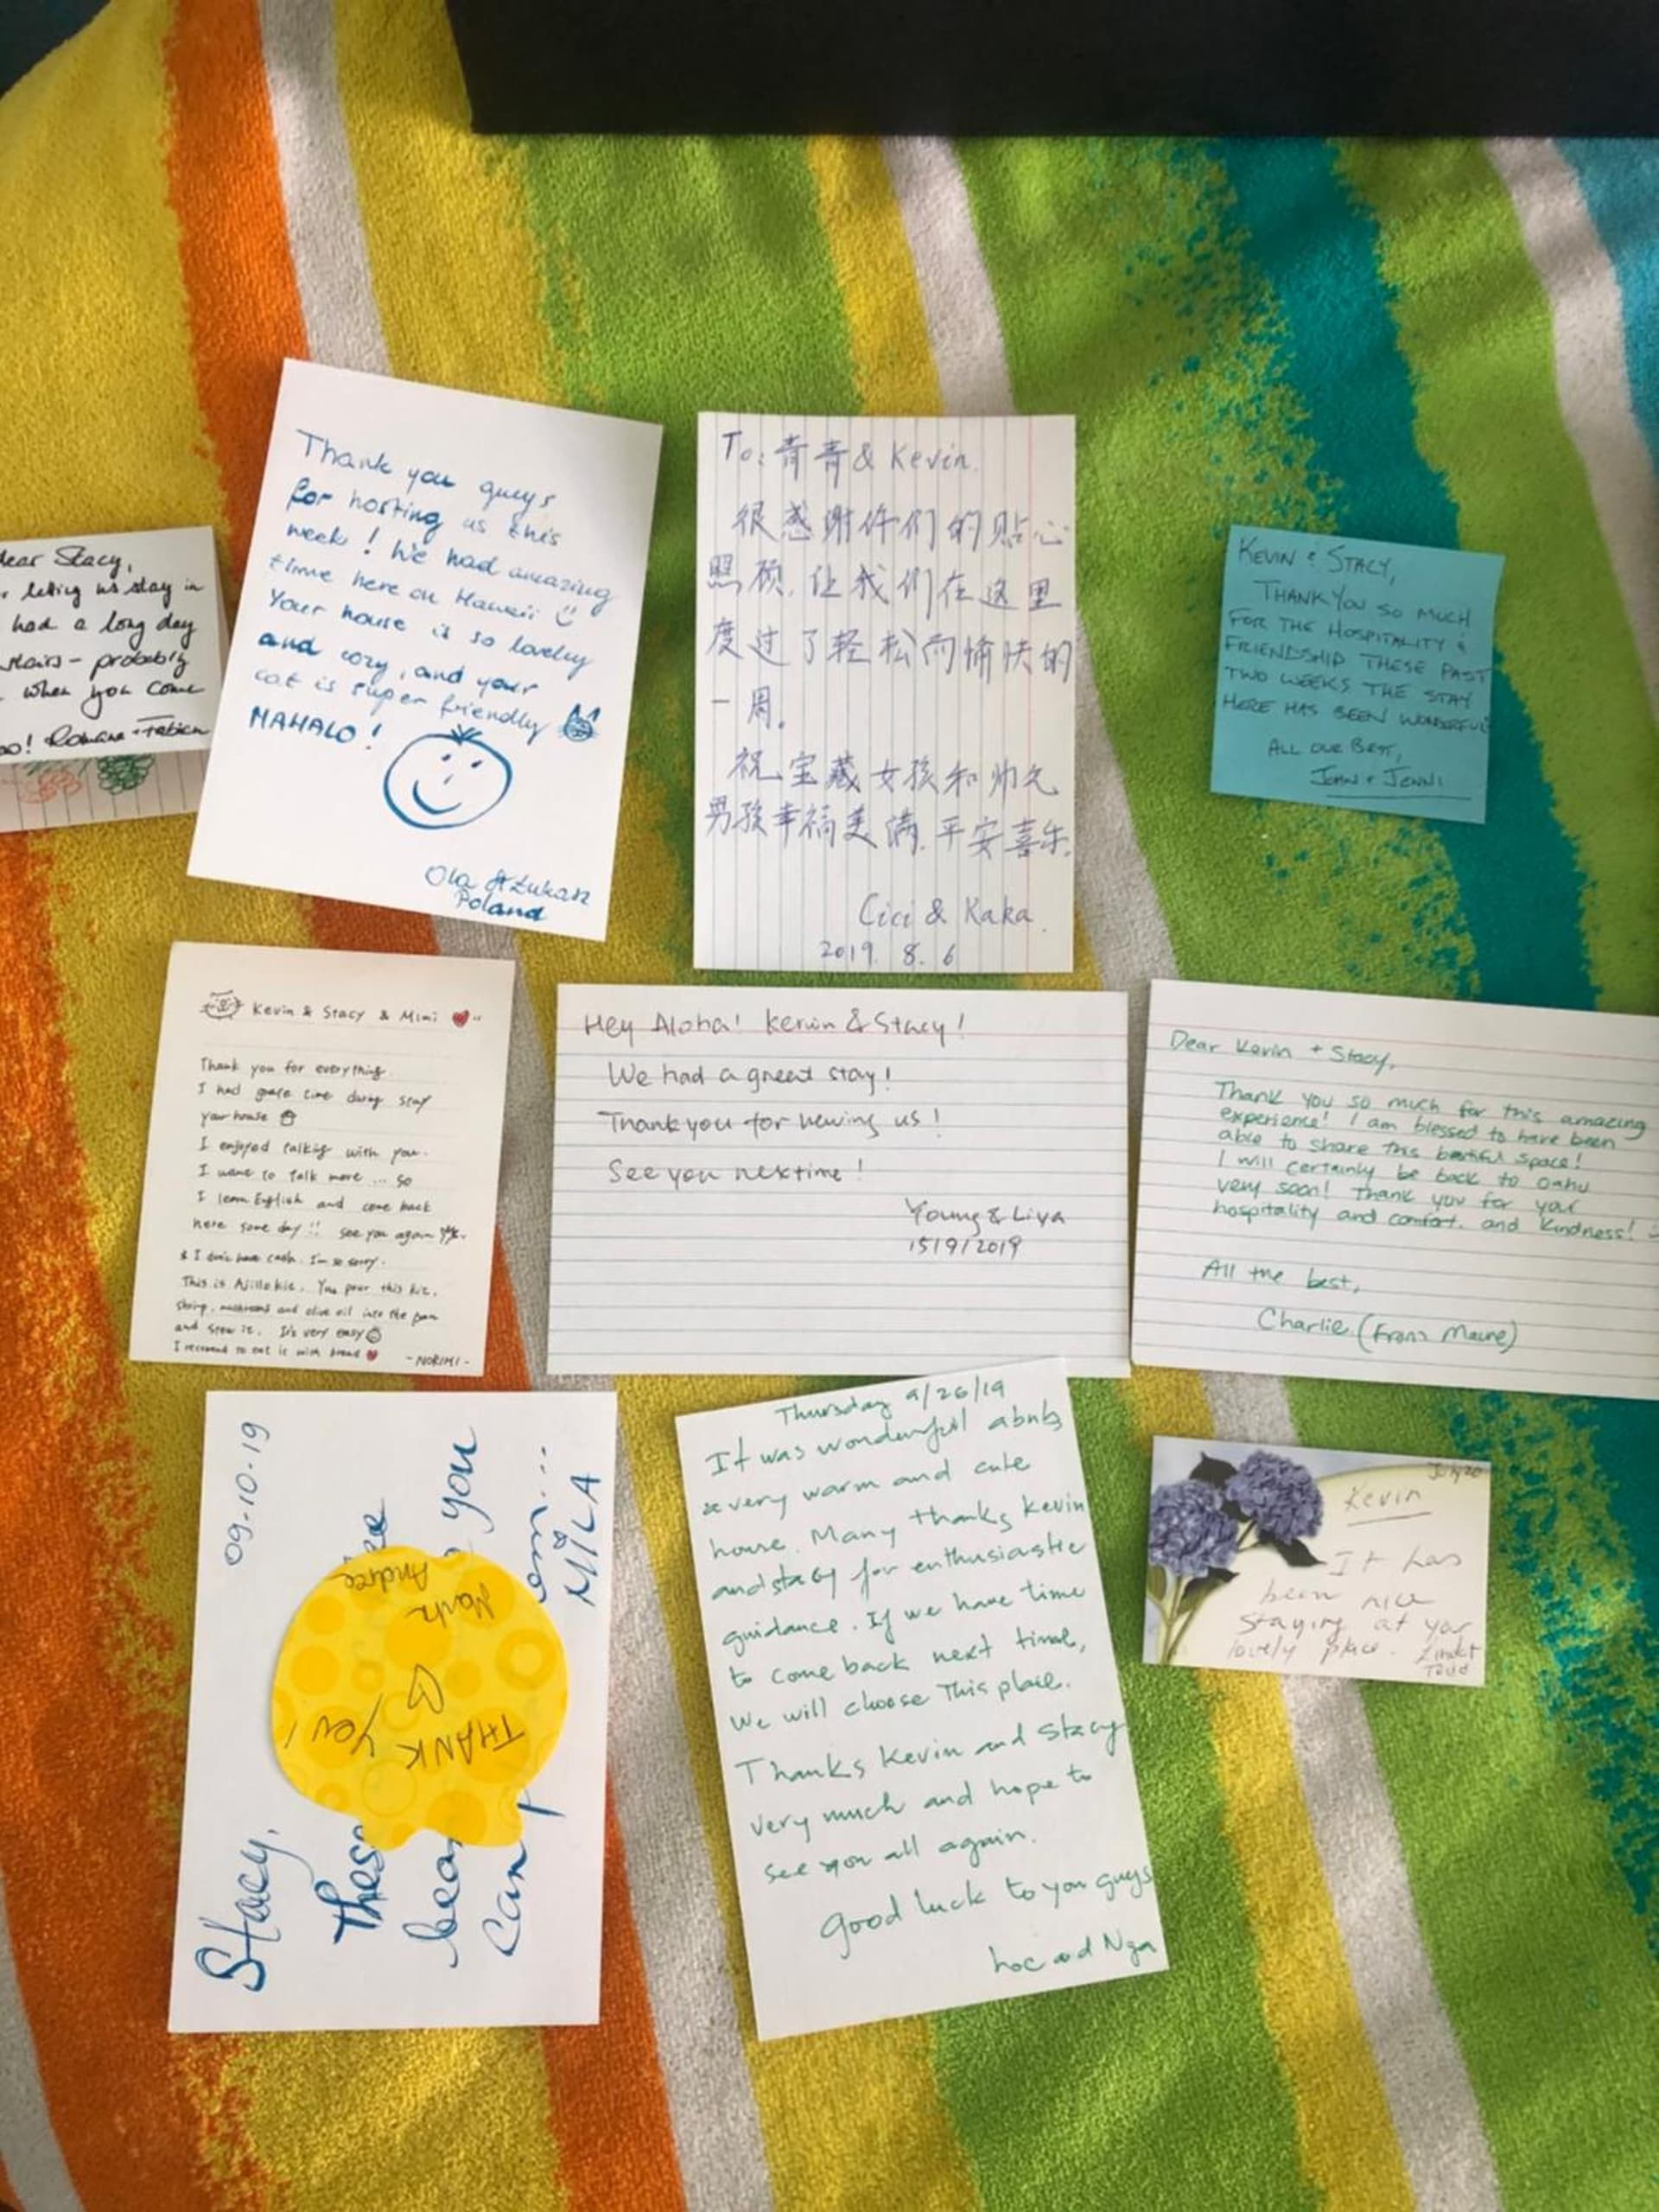 Dear Stacy,
letting us stay in
had a long day
stairs - probably
when you come
Romana + Fabian
Thank you guys
for hosting us this
week! We had amazing
time here on Hawaii
Your house is so lovely
and cozy, and your
cat is super friendly
MAHALO!
Ola & Łukasz
Poland
To: 青青 & Kevin.
很感谢你们的贴心
照顾,让我们在这里
度过了轻松而愉快的
一周。
祝宝藏女孩和帅气
男孩幸福美满,平安喜乐.
Cici & Kaka.
2019. 8. 6
KEVIN & STACY,
THANK YOU SO MUCH
FOR THE HOSPITALITY &
FRIENDSHIP THESE PAST
TWO WEEKS THE STAY
HERE HAS BEEN WONDERFUL
ALL OUR BEST,
JOHN + JENNI
Kevin & Stacy & Mimi
Thank you for everything.
I had grate time during stay
your house
I enjoyed talking with you.
I want to talk more ... so
I learn English and come back
here some day!! see you again
& I don't have cash. I'm so sorry.
This is Ajillo kit. You pour this kit,
shrimp, mushrooms and olive oil into the pan
and stew it. It's very easy
I recomend to eat it with bread
- NORIMI -
Hey Aloha! Kevin & Stacy!
We had a great stay!
Thank you for having us!
See you nextime!
Young & Liya
15/9/2019
Dear Kevin + Stacy,
Thank you so much for this amazing
experience! I am blessed to have been
able to share this beautiful space!
I will certainly be back to Oahu
very soon! Thank you for your
hospitality and comfort. and Kindness!
All the best,
Charlie (From Maine)
09-10-19
Stacy,
These
you
can
MILA
THANK
YOU!
Mark
Andree
Thursday 9/26/19
It was wonderful abnb
a very warm and cute
house. Many thanks Kevin
and stacy for enthusiastic
guidance. If we have time
to come back next time,
We will choose This place.
Thanks Kevin and Stacy
very much and hope to
see you all again.
Good luck to you guys
Loc and Nga
Kevin
It has
been nice
staying at your
lovely place.
Todd